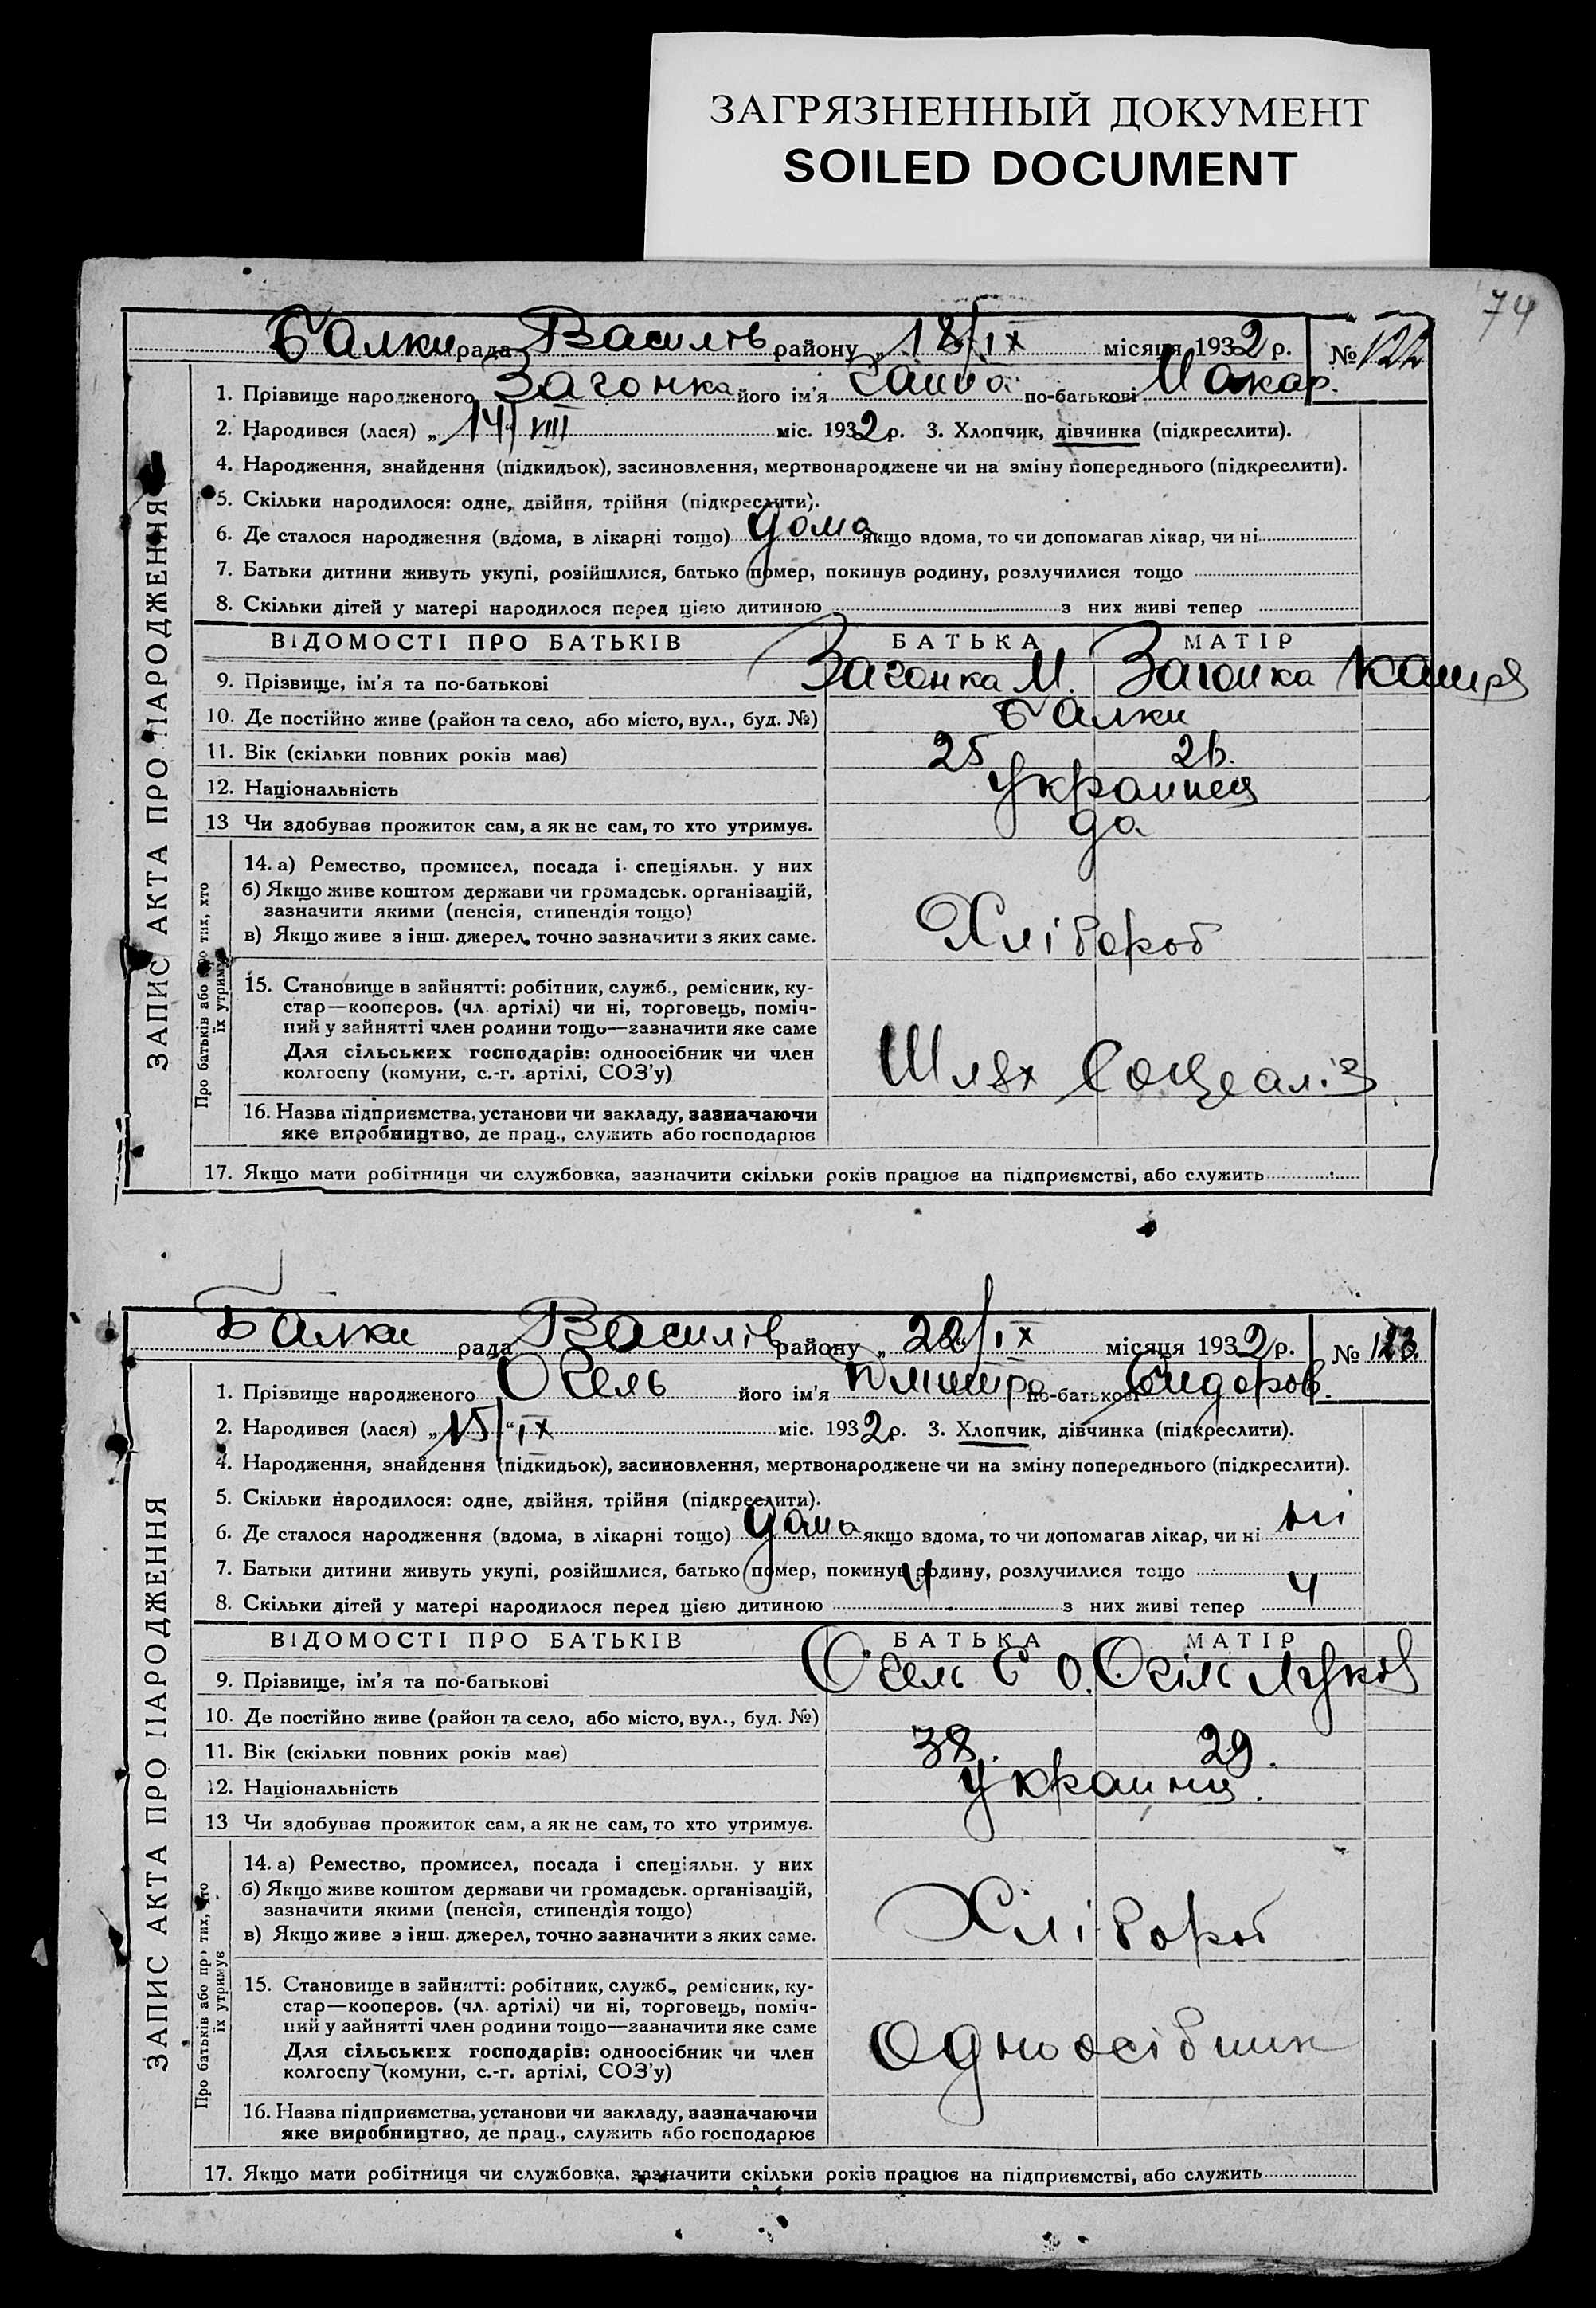 ЗАГРЯЗНЕННЫЙ ДОКУМЕНТ
SOILED DOCUMENT
74
Балки рада Василів району „ 18/IX місяця 1932 р. № 122
1. Прізвище народженого Загонка його ім'я Ганна по-батькові Макар.
2. Народився (лася) „14/VIII міс. 1932 р. 3. Хлопчик, дівчинка (підкреслити).
4. Народження, знайдення (підкидьок), засиновлення, мертвонароджене чи на зміну попереднього (підкреслити).
5. Скільки народилося: одне, двійня, трійня (підкреслити).
6. Де сталося народження (вдома, в лікарні тощо) дома якщо вдома, то чи допомагав лікар, чи ні
7. Батьки дитини живуть укупі, розійшлися, батько помер, покинув родину, розлучилися тощо
8. Скільки дітей у матері народилося перед цією дитиною з них живі тепер
ВІДОМОСТІ ПРО БАТЬКІВ БАТЬКА МАТІР
9. Прізвище, ім'я та по-батькові Загонка М. Загонка
10. Де постійно живе (район та село, або місто, вул., буд. №) Балки
11. Вік (скільки повних років має) 25
12. Національність
13 Чи здобуває прожиток сам, а як не сам, то хто утримує. да
14. а) Ремество, промисел, посада і спеціяльн. у них
б) Якщо живе коштом держави чи громадськ. організацій,
зазначити якими (пенсія, стипендія тощо)
Хлібороб
в) Якщо живе з інш. джерел, точно зазначити з яких саме.
15. Становище в зайнятті: робітник, служб., ремісник, ку-
стар—кооперов. (чл. артілі) чи ні, торговець, поміч-
ний у зайнятті член родини тощо—зазначити яке саме
Для сільських господарів: одноосібник чи член
колгоспу (комуни, с.-г. артілі, СОЗ'у)
Шлях Соцеаліз
16. Назва підприємства, установи чи закладу, зазначаючи
яке впробництво, де прац., служить або господарює
17. Якщо мати робітниця чи службовка, зазначити скільки років працює на підприємстві, або служить
ЗАПИС АКТА ПРО НАРОДЖЕННЯ
Про батьків або про тих, хто
їх утримує
Балки рада Василів району „ 22/IX місяця 1932 р. № 123.
1. Прізвище народженого Огель його ім'я Дмитро по-батькові Сидоров.
2. Народився (лася) „15/“ IX міс. 1932 р. 3. Хлопчик, дівчинка (підкреслити).
4. Народження, знайдення (підкидьок), засиновлення, мертвонароджене чи на зміну попереднього (підкреслити).
5. Скільки народилося: одне, двійня, трійня (підкреслити).
6. Де сталося народження (вдома, в лікарні тощо) дома якщо вдома, то чи допомагав лікар, чи ні ні
7. Батьки дитини живуть укупі, розійшлися, батько помер, покинув родину, розлучилися тощо
8. Скільки дітей у матері народилося перед цією дитиною 4 з них живі тепер 4
ВІДОМОСТІ ПРО БАТЬКІВ БАТЬКА МАТІР
9. Прізвище, ім'я та по-батькові Огель С О. Огіль
10. Де постійно живе (район та село, або місто, вул., буд. №)
11. Вік (скільки повних років має) 38. 29.
12. Національність
13 Чи здобуває прожиток сам, а як не сам, то хто утримує.
14. а) Ремество, промисел, посада і спеціяльн. у них
б) Якщо живе коштом держави чи громадськ. організацій,
зазначити якими (пенсія, стипендія тощо)
Хлібороб
в) Якщо живе з інш. джерел, точно зазначити з яких саме.
15. Становище в зайнятті: робітник, служб., ремісник, ку-
стар—кооперов. (чл. артілі) чи ні, торговець, поміч-
ний у зайнятті член родини тощо—зазначити яке саме
Для сільських господарів: одноосібник чи член
колгоспу (комуни, с.-г. артілі, СОЗ'у)
Одноосібник
16. Назва підприємства, установи чи закладу, зазначаючи
яке виробництво, де прац., служить або господарює
17. Якщо мати робітниця чи службовка, зазначити скільки років працює на підприємстві, або служить
ЗАПИС АКТА ПРО НАРОДЖЕННЯ
Про батьків або про тих, хто
їх утримує